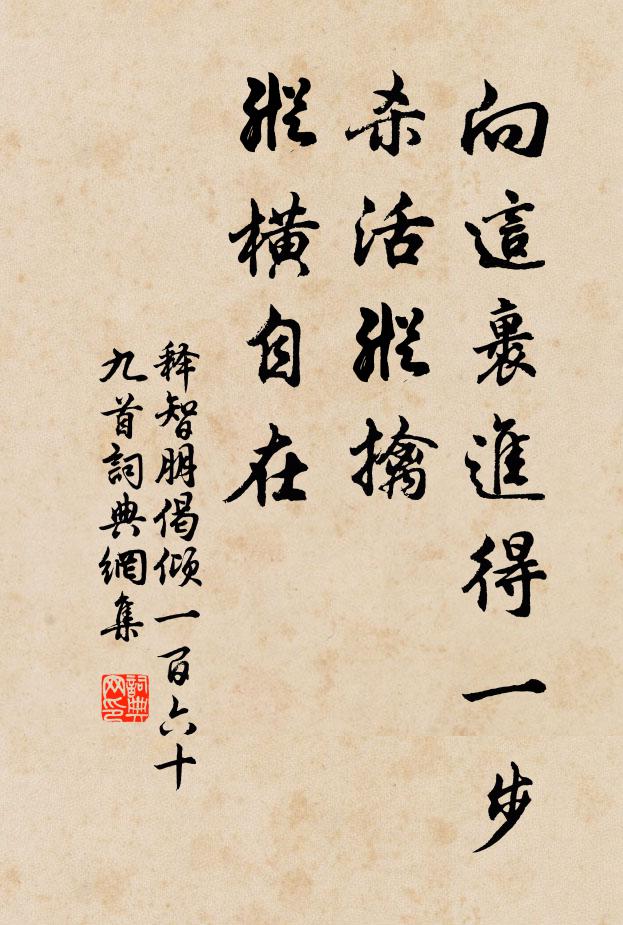 向這裏進得一步
杀活縱擒
縱橫自在
释智朋偈倾一百六十
九首詞典網集
詞典
网印